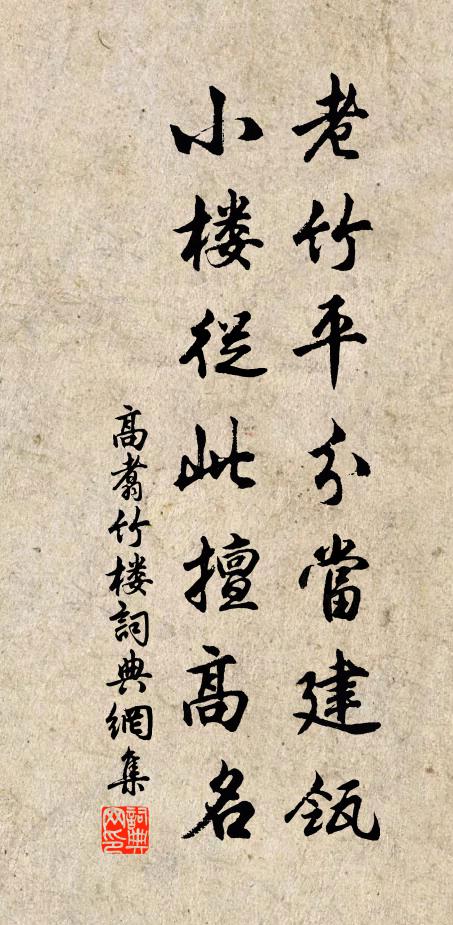 老竹平分當建瓴
小楼從此擅高名
高翥竹楼詞典網集
詞典网印